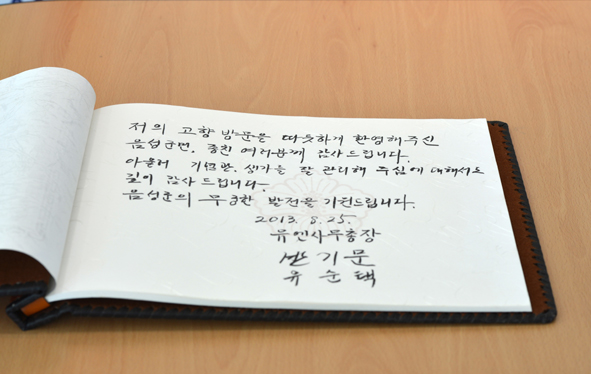 저의 고향 방문을 따뜻하게 환영해주신
음성군민, 종친 여러분께 감사드립니다.
아울러 기념관, 생가를 잘 관리해 주심에 대해서도
깊이 감사드립니다.
음성군의 무궁한 발전을 기원드립니다.
2013. 8. 25.
유엔사무총장
반기문
유순택